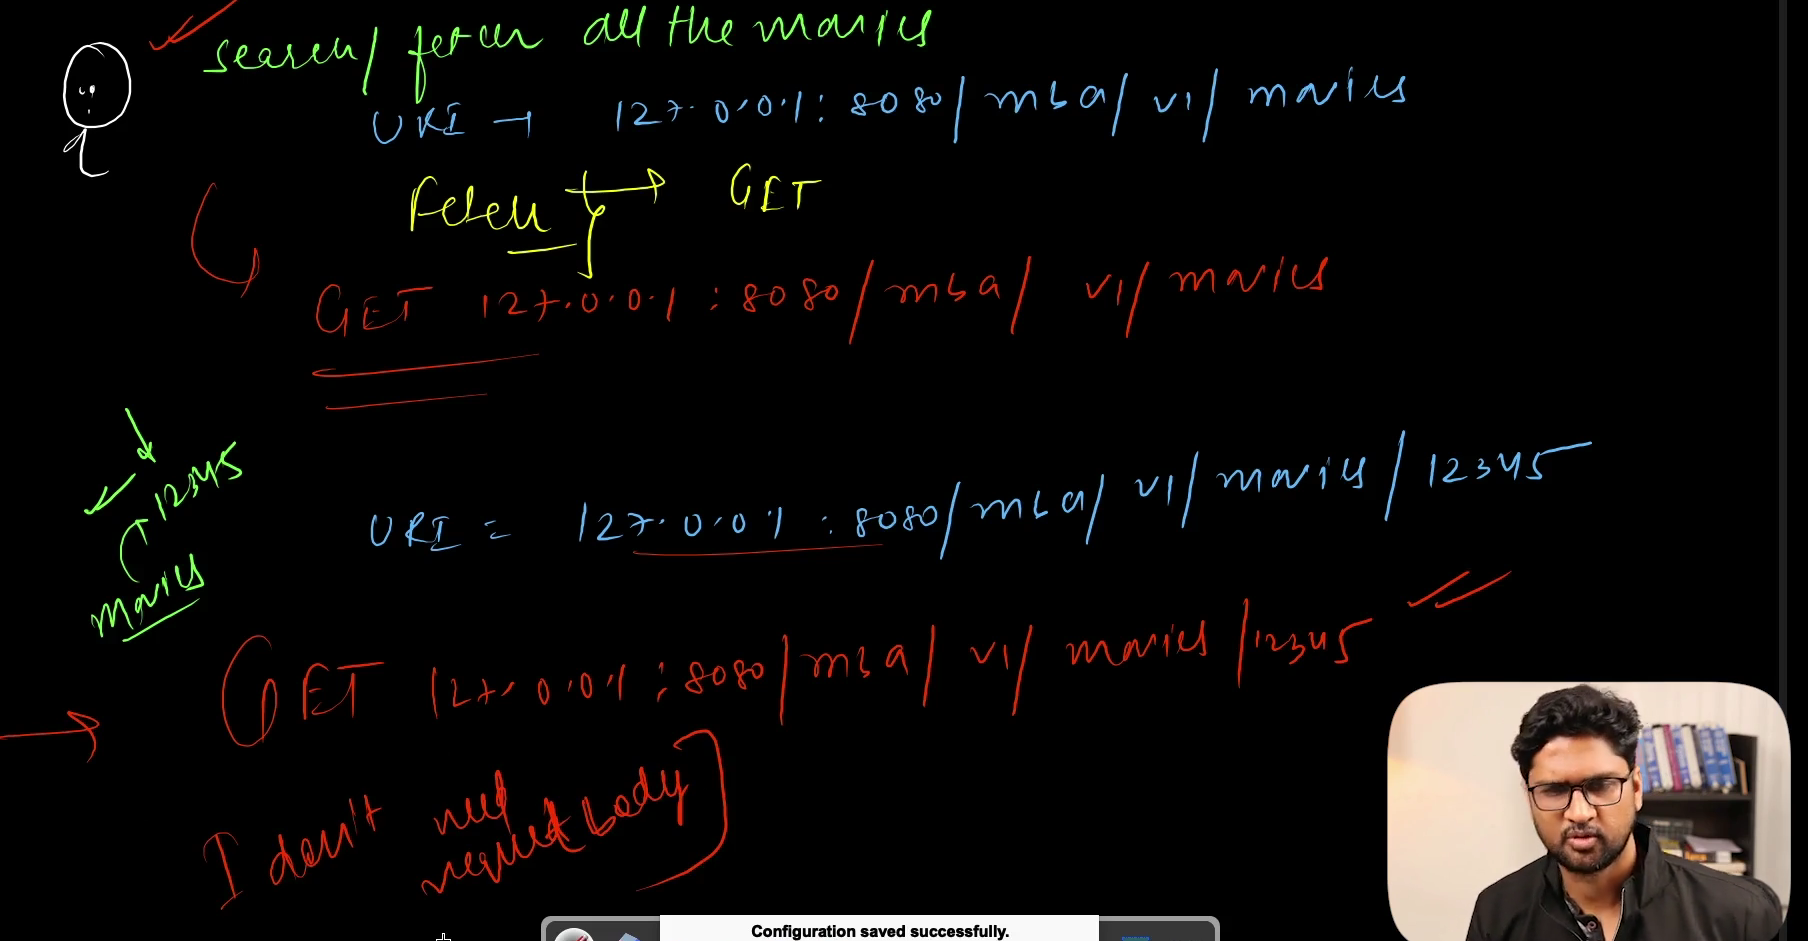 search/ fetch all the movies
URI → 127.0.0.1:8080/mba/v1/movies
Fetch → GET
GET 127.0.0.1:8080/mba/v1/movies
12345
movies
URI = 127.0.0.1:8080/mba/v1/movies/12345
GET 127.0.0.1:8080/mba/v1/movies/12345
I don't need
request body
Configuration saved successfully.